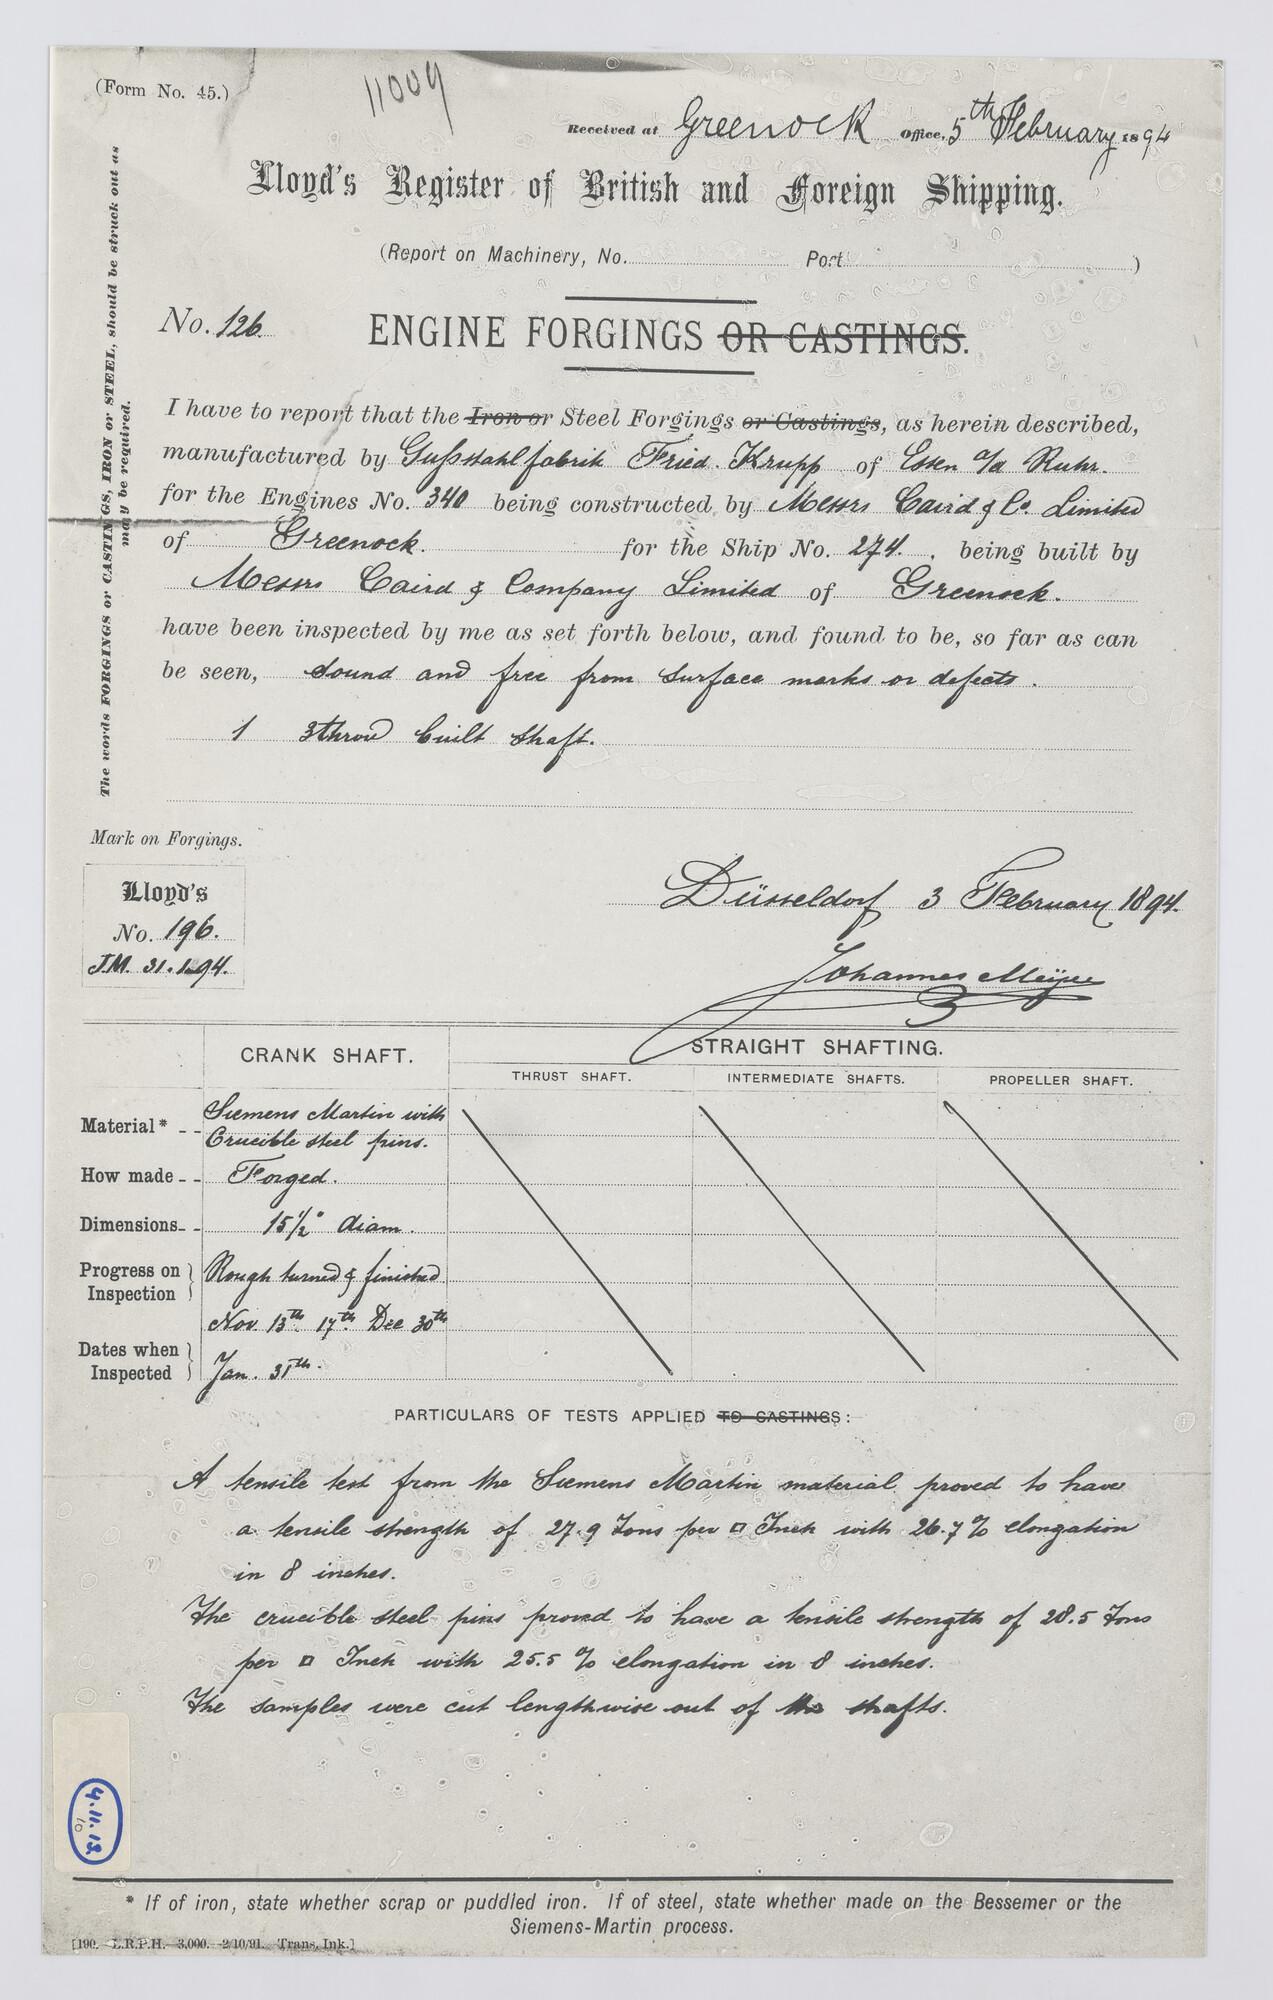 (Form No. 45.)
11009
Received at Greenock Office, 5th February 1894
Lloyd's Register of British and Foreign Shipping.
(Report on Machinery, No. Port )
No. 126.
ENGINE FORGINGS OR CASTINGS.
I have to report that the Iron or Steel Forgings or Castings, as herein described,
manufactured by Gußstahlfabrik Fried. Krupp of Essen a/d Ruhr.
for the Engines No. 340 being constructed by Messrs Caird & Co. Limited
of Greenock. for the Ship No. 274. , being built by
Messrs Caird & Company Limited of Greenock.
have been inspected by me as set forth below, and found to be, so far as can
be seen, sound and free from surface marks or defects.
1 3throw built shaft.
The words FORGINGS or CASTINGS, IRON or STEEL, should be struck out as
may be required.
Mark on Forgings.
Lloyd's
No. 196.
J.M. 31.1.94.
Düsseldorf 3 February 1894.
Johannes Meijer
CRANK SHAFT.
STRAIGHT SHAFTING.
THRUST SHAFT. INTERMEDIATE SHAFTS. PROPELLER SHAFT.
Material* -- Siemens Martin with
Crucible steel pins.
How made -- Forged.
Dimensions -- 15 1/2" diam.
Progress on
Inspection } Rough turned & finished
Nov 13th. 17th. Dec 30th
Dates when
Inspected } Jan. 31th.
PARTICULARS OF TESTS APPLIED TO CASTINGS:
A tensile test from the Siemens Martin material proved to have
a tensile strength of 27.9 Tons per □ Inch with 26.7 % elongation
in 8 inches.
The crucible steel pins proved to have a tensile strength of 28.5 Tons
per □ Inch with 25.5 % elongation in 8 inches.
The samples were cut lengthwise out of the shafts.
4.11.13
10
* If of iron, state whether scrap or puddled iron. If of steel, state whether made on the Bessemer or the
Siemens-Martin process.
[190. L.R.P.H. 3,000. 2/10/91. Trans. Ink.]